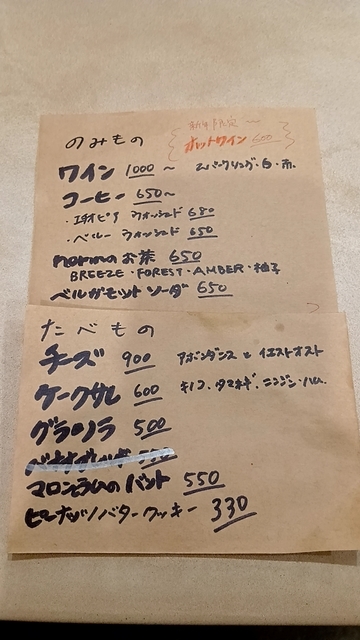 のみもの
新年限定
ホットワイン 600
ワイン 1000〜 スパークリング・白・赤
コーヒー 650〜
・エチオピア ウォッシュド 680
・ペルー ウォッシュド 650
のお茶 650
BREEZE・FOREST・AMBER・柚子
ベルガモット ソーダ 650
たべもの
チーズ 900 アボンダンス と イエストオスト
ケークサレ 600 キノコ、タマネギ、ニンジン、ハム
グラノラ 500
マロンとラムの パント 550
ピーナッツバタークッキー 330